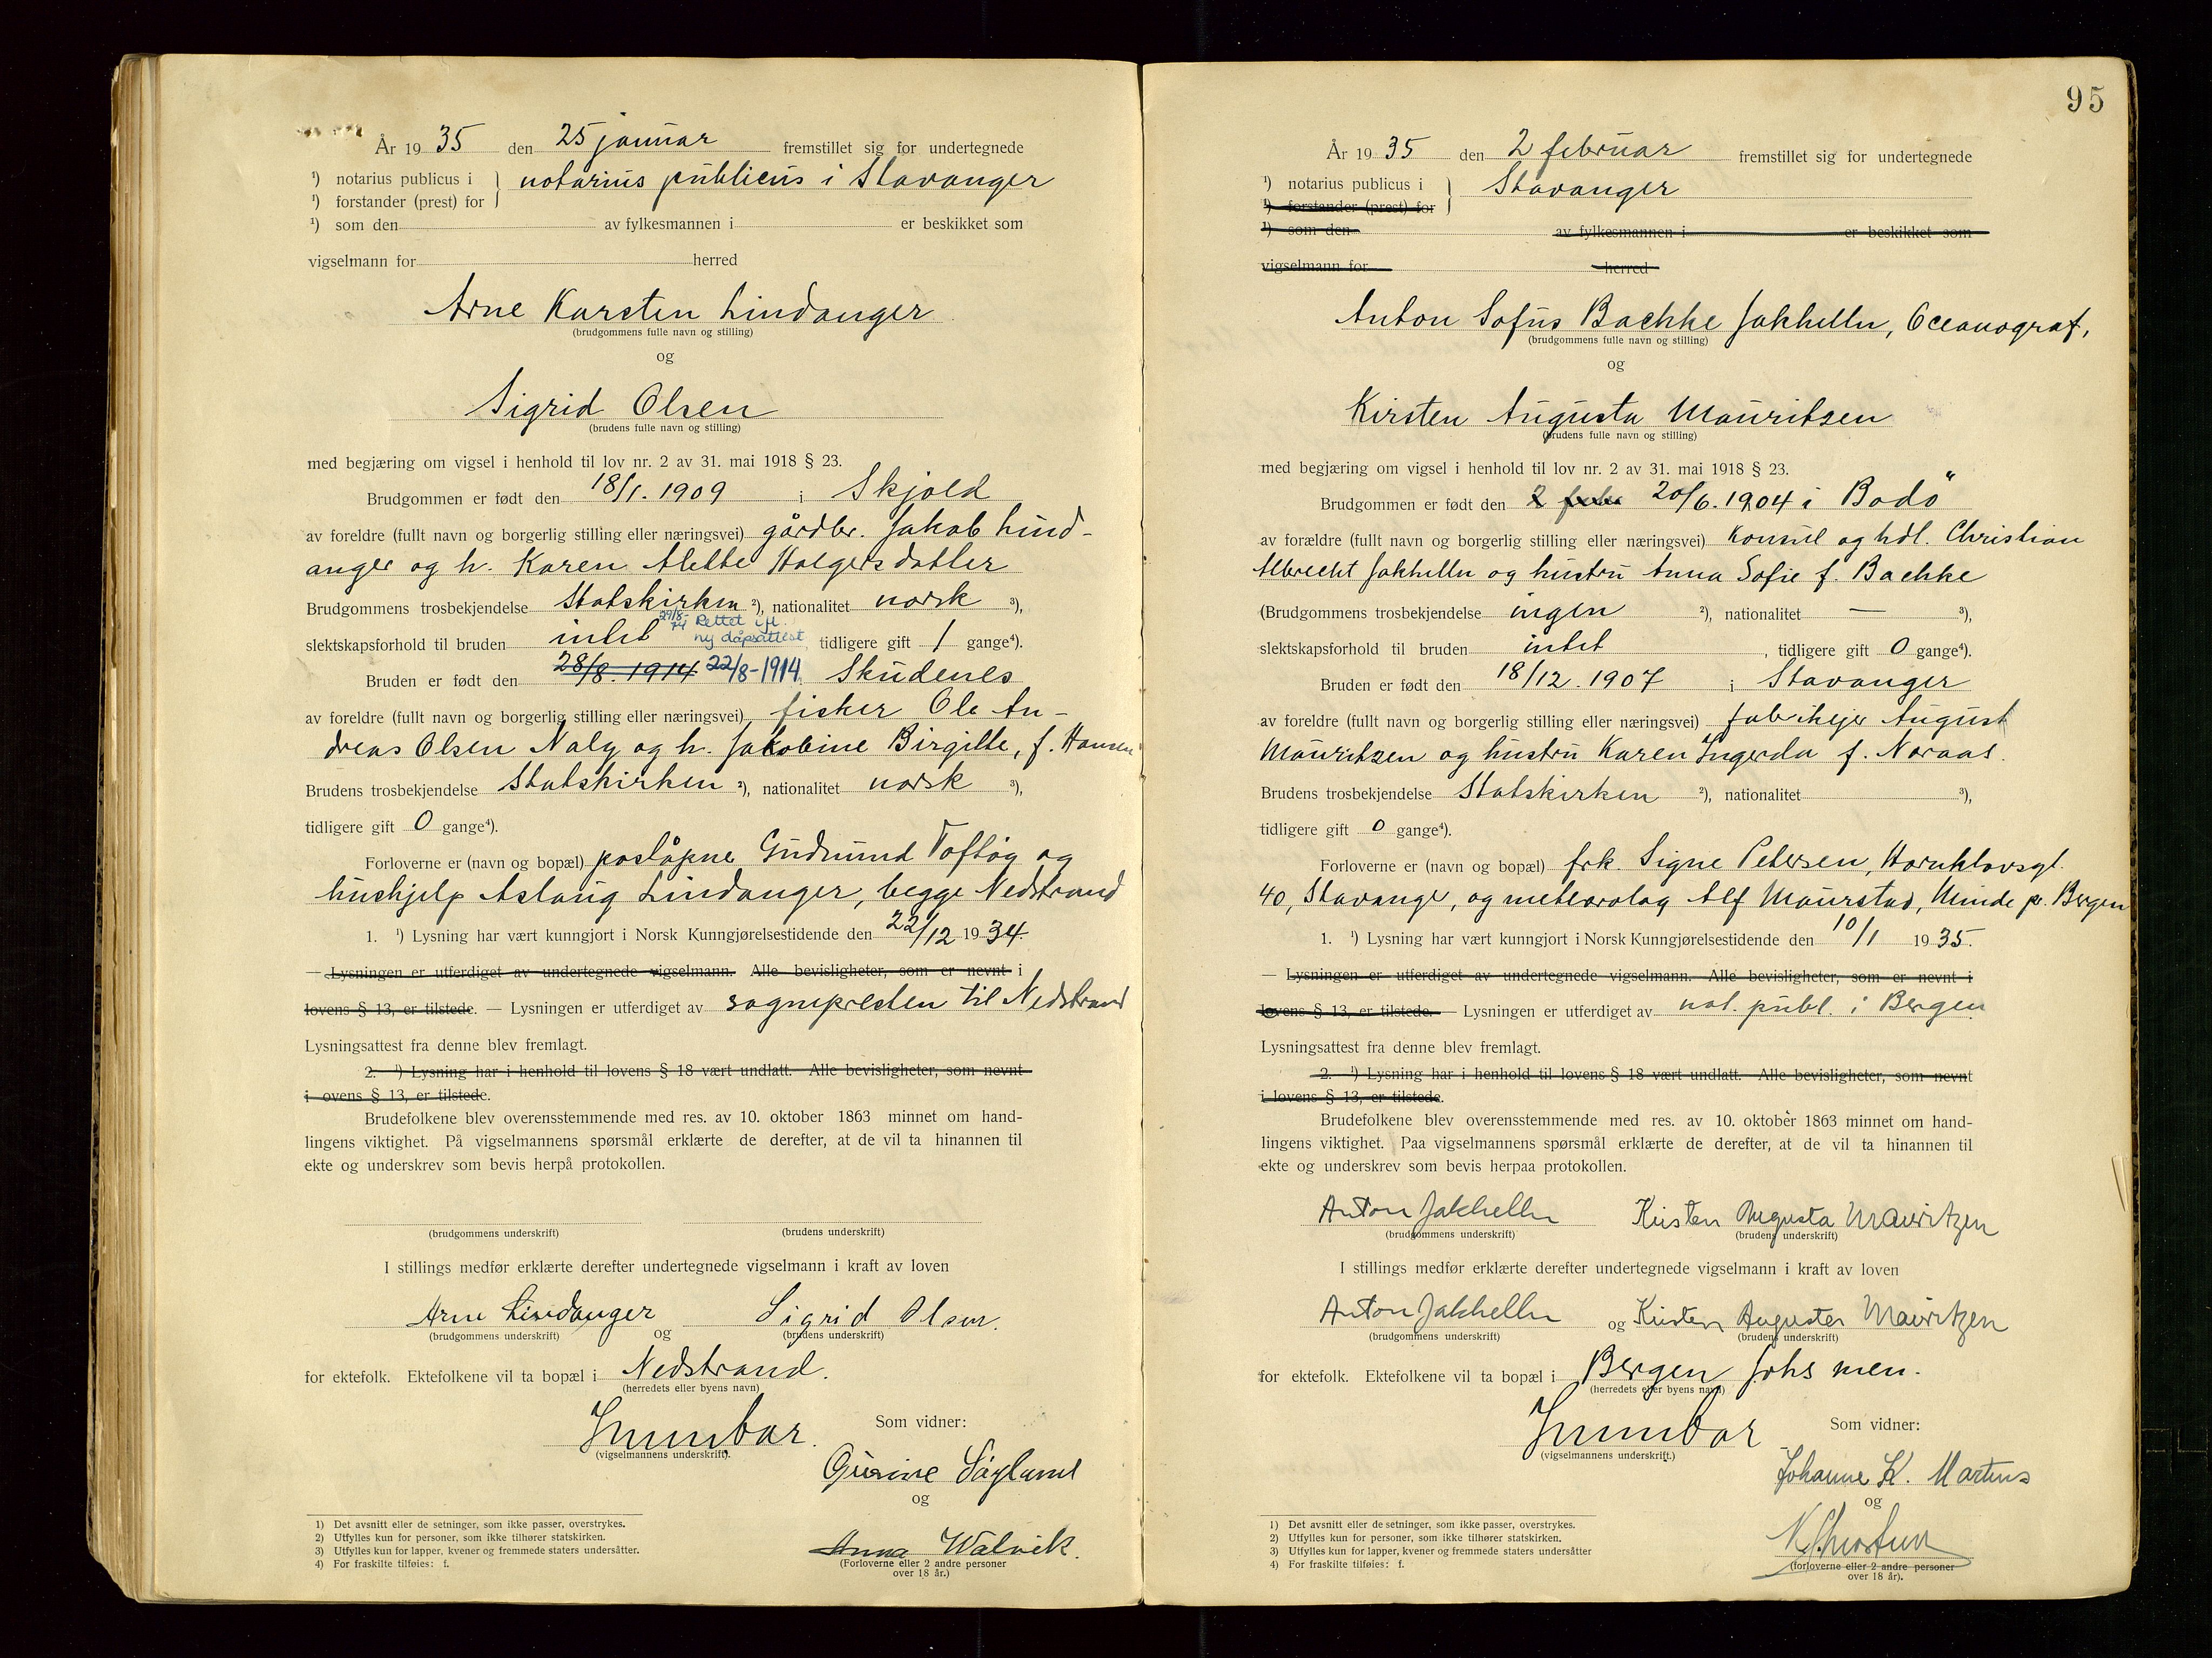 År 19 35 den 25 januar fremstillet sig for undertegnede
¹) notarius publicus i } notarius publicus i Stavanger
¹) forstander (prest) for
¹) som den av fylkesmannen i er beskikket som
vigselmann for herred
Arne Karsten Lindanger
(brudgommens fulle navn og stilling)
og
Sigrid Olsen
(brudens fulle navn og stilling)
med begjæring om vigsel i henhold til lov nr. 2 av 31. mai 1918 § 23.
Brudgommen er født den 18/1. 1909 i Skjold
av foreldre (fullt navn og borgerlig stilling eller næringsvei) gårdbr. Jakob Lind-
anger og h. Karen Alette Holgersdatter
Brudgommens trosbekjendelse Statskirken ²), nationalitet norsk ³),
29/8-74 Rettet ifl.
ny dåpsattest
slektskapsforhold til bruden intet tidligere gift 1 gange⁴).
Bruden er født den 28/8. 1914 22/8-1914 Skudenes
av foreldre (fullt navn og borgerlig stilling eller næringsvei) fisker Ole An-
dreas Olsen Naly og h. Jakobine Birgitte, f. Hansen
Brudens trosbekjendelse Statskirken ²), nationalitet norsk ³),
tidligere gift 0 gange⁴).
Forloverne er (navn og bopæl) poståpne Gudmund Toftøy og
hushjelp Aslaug Lindanger, begge Nedstrand
1. ¹) Lysning har vært kunngjort i Norsk Kunngjørelsestidende den 22/12 19 34.
— Lysningen er utferdiget av undertegnede vigselmann. Alle bevisligheter, som er nevnt i
lovens § 13, er tilstede. — Lysningen er utferdiget av sognepresten til Nedstrand
Lysningsattest fra denne blev fremlagt.
2. ¹) Lysning har i henhold til lovens § 18 vært undlatt. Alle bevisligheter, som nevnt
i ovens § 13, er tilstede.
Brudefolkene blev overensstemmende med res. av 10. oktober 1863 minnet om hand-
lingens viktighet. På vigselmannens spørsmål erklærte de derefter, at de vil ta hinannen til
ekte og underskrev som bevis herpå protokollen.
(brudgommens underskrift) (brudens underskrift)
I stillings medfør erklærte derefter undertegnede vigselmann i kraft av loven
Arne Lindanger Sigrid Olsen.
(brudgommens underskrift) og (brudens underskrift)
for ektefolk. Ektefolkene vil ta bopæl i Nedstrand.
(herredets eller byens navn)
Som vidner:
(vigselmannens underskrift).
og
Anna Walvik.
(Forloverne eller 2 andre personer
over 18 år.)
1) Det avsnitt eller de setninger, som ikke passer, overstrykes.
2) Utfylles kun for personer, som ikke tilhører statskirken.
3) Utfylles kun for lapper, kvener og fremmede staters undersåtter.
4) For fraskilte tilføies: f.
95
År 19 35 den 2 februar fremstillet sig for undertegnede
¹) notarius publicus i } Stavanger
¹) forstander (prest) for
¹) som den av fylkesmannen i er beskikket som
vigselmann for herred
Anton Sofus Bachke Jakhelln, Oceanograf,
(brudgommens fulle navn og stilling)
og
Kirsten Augusta Mauritzen
(brudens fulle navn og stilling)
med begjæring om vigsel i henhold til lov nr. 2 av 31. mai 1918 § 23.
Brudgommen er født den 2 febr 20/6. 1904 i Bodö
av forældre (fullt navn og borgerlig stilling eller næringsvei) Konsul og hdl. Christian
Albrecht Jakhelln og hustru Anna Sofie f. Bachke
(Brudgommens trosbekjendelse ingen ²), nationalitet — ³),
slektskapsforhold til bruden intet , tidligere gift 0 gange⁴).
Bruden er født den 18/12. 1907 i Stavanger
av foreldre (fullt navn og borgerlig stilling eller næringsvei) fabrikejer August
Mauritzen og hustru Karen Ingerda f. Noraas.
Brudens trosbekjendelse Statskirken ²), nationalitet ³),
tidligere gift 0 gange⁴).
Forloverne er (navn og bopæl) frk. Signe Petersen, Hornklovsgt.
40, Stavanger, og meteorolog Alf Maurstad, Minde pr. Bergen
1. ¹) Lysning har vært kunngjort i Norsk Kunngjørelsestidende den 10/1 19 35.
— Lysningen er utferdiget av undertegnede vigselmann. Alle bevisligheter, som er nevnt i
lovens § 13, er tilstede. — Lysningen er utferdiget av not. publ. i Bergen
Lysningsattest fra denne blev fremlagt.
2. ¹) Lysning har i henhold til lovens § 18 vært undlatt. Alle bevisligheter, som nevnt
i lovens § 13, er tilstede.
Brudefolkene blev overensstemmende med res. av 10. oktober 1863 minnet om hand-
lingens viktighet. Paa vigselmannens spørsmål erklærte de derefter, at de vil ta hinannen til
ekte og underskrev som bevis herpaa protokollen.
Anton Jakhelln Kirsten Augusta Mauritzen
(brudgommens underskrift) (brudens underskrift)
I stillings medfør erklærte derefter undertegnede vigselmann i kraft av loven
Anton Jakhelln og Kirsten Augusta Mauritzen
(brudgommens underskrift) (brudens underskrift)
for ektefolk. Ektefolkene vil ta bopæl i Bergen
(herredets eller byens navn)
Som vidner:
(vigselmannens underskrift.)
Johanne K. Martens
og
(forloverne eller 2 andre personer
over 18 år).
1) Det avsnitt eller de setninger, som ikke passer, overstrykes.
2) Utfylles kun for personer, som ikke tilhører statskirken.
3) Utfylles kun for lapper, kvener og fremmede staters undersåtter
4) For fraskilte tilføies: f.